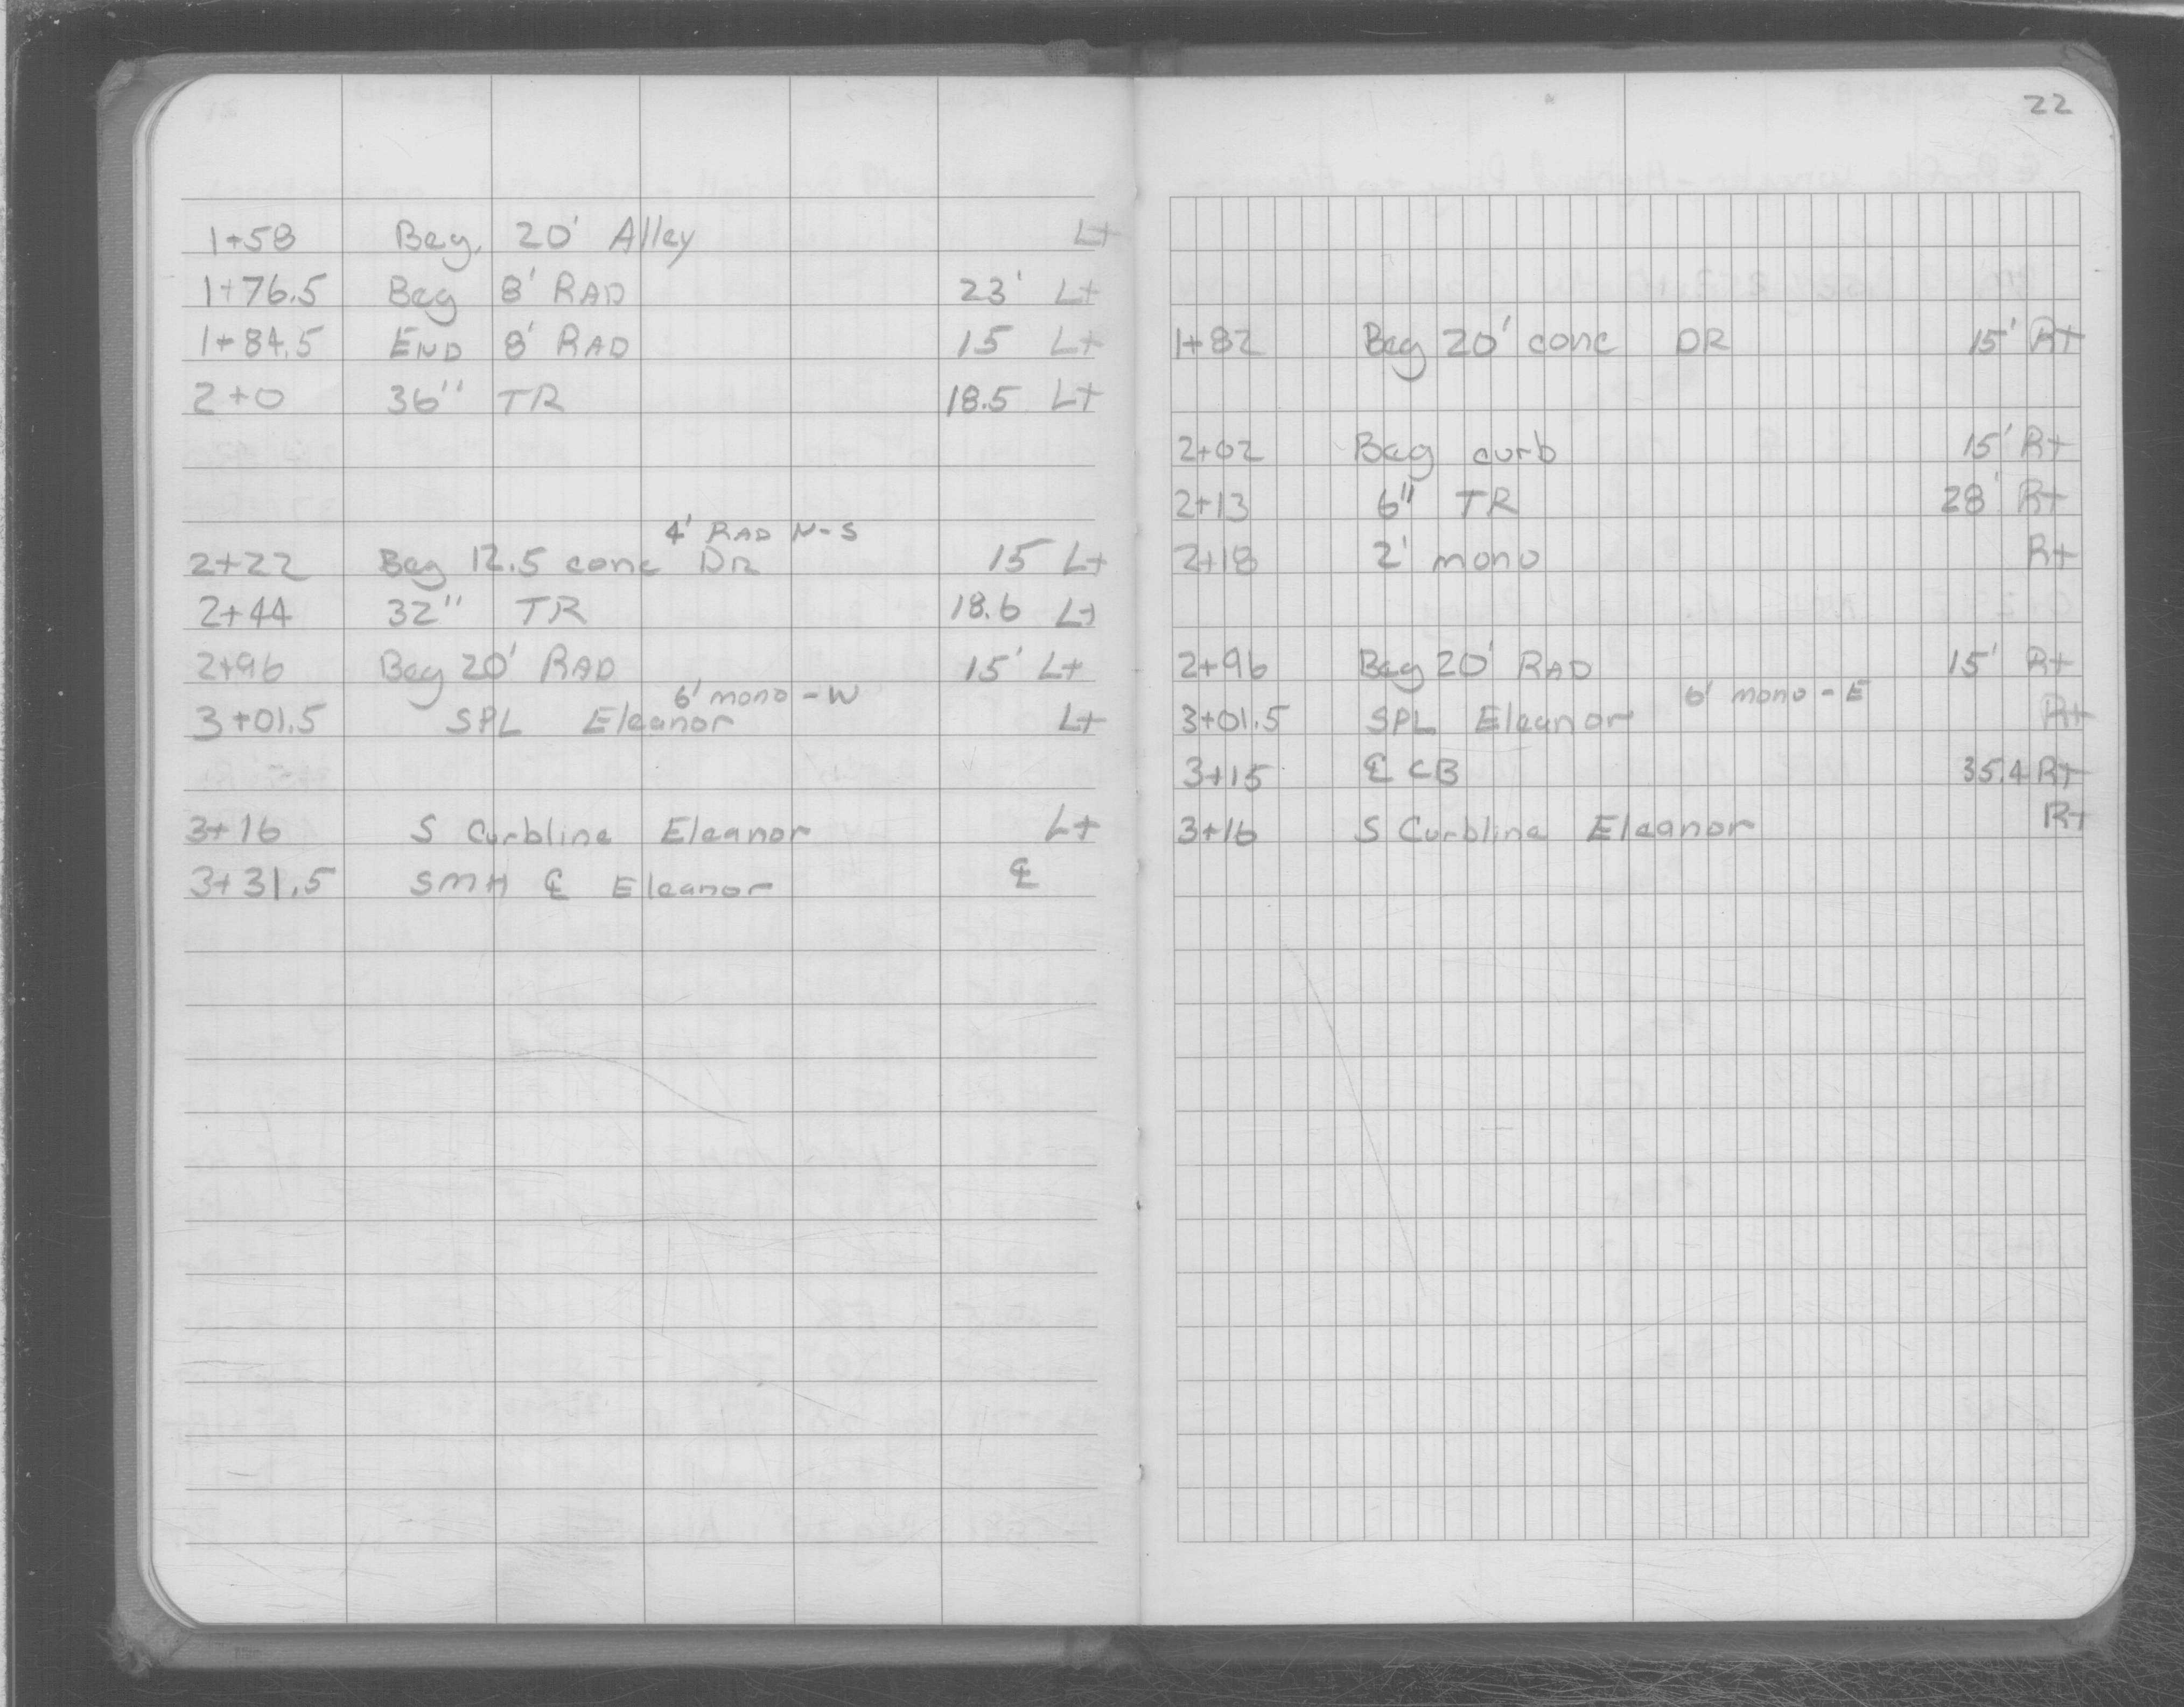 1+58 Beg. 20' Alley Lt
1+76.5 Beg 8' RAD 23' Lt
1+84.5 END 8' RAD 15 Lt
2+0 36" TR 18.5 Lt
4' RAD N-S
2+22 Beg 12.5 conc DR 15 Lt
2+44 32" TR 18.6 Lt
2+96 Beg 20' RAD 15' Lt
6' mono - W
3+01.5 SPL Eleanor Lt
3+16 S Curbline Eleanor Lt
3+31.5 SMH ℄ Eleanor ℄
22
1+82 Beg 20' conc DR 15' Rt
2+02 Beg curb 15' Rt
2+13 6" TR 28' Rt
2+18 2' mono Rt
2+96 Beg 20' RAD 15' Rt
6' mono - E
3+01.5 SPL Eleanor Rt
3+15 ℄ CB 35.4 Rt
3+16 S Curbline Eleanor Rt